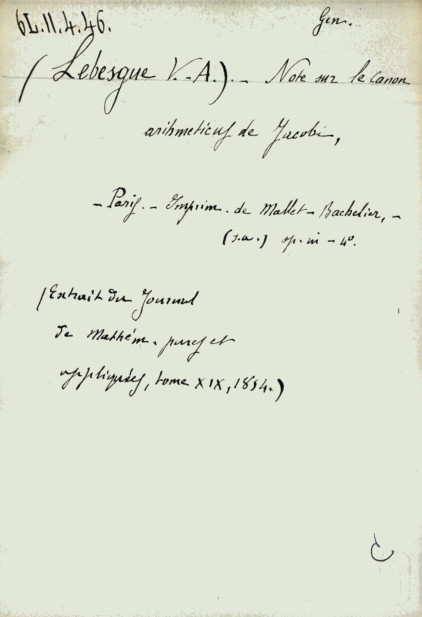 6L.11.4.46.
Gen.
(Lebesgue V.-A.). - Note sur le canon
arithmeticus de Jacobi,
- Paris. - Imprim. de Mallet-Bachelier, -
(s.a.) in-4º.
(Extrait du Journal
de Mathém. pures et
appliquées, tome XIX, 1854.)